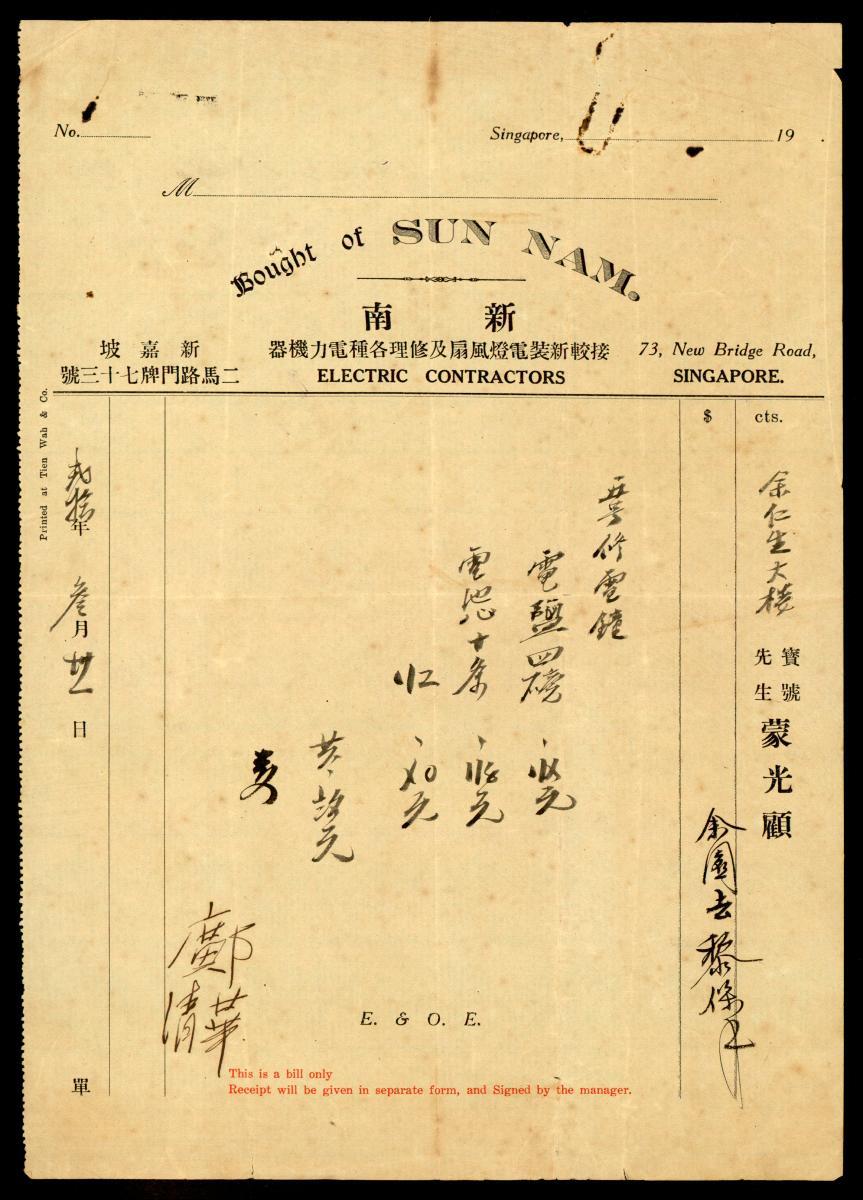 No.
Singapore, 19
M
Bought of SUN NAM.
南 新
坡 嘉 新
器機力電種各理修及扇風燈電裝新較接
73, New Bridge Road,
號三十七牌門路馬二
ELECTRIC CONTRACTORS
SINGAPORE.
$ cts.
余仁生大樓
寶號
先生
蒙光顧
修電鐘
電鹽四磅
電池心十条
年
叁月廿一日
鄺清華
單
E. & O. E.
This is a bill only
Receipt will be given in separate form, and Signed by the manager.
Printed at Tien Wah & Co.